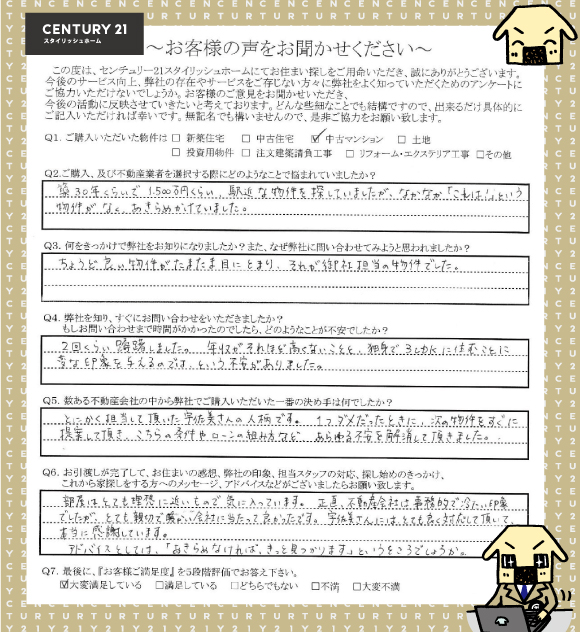 CENTURY 21
スタイリッシュホーム
～お客様の声をお聞かせください～
この度は、センチュリー21スタイリッシュホームにてお住まい探しをご用命いただき、誠にありがとうございます。
今後のサービス向上、弊社の存在やサービスをご存じない方々に弊社をよく知っていただくためのアンケートに
ご協力いただけないでしょうか。お客様のご意見をお聞かせいただき、
今後の活動に反映させていきたいと考えております。どんな些細なことでも結構ですので、出来るだけ具体的に
ご記入いただければ幸いです。無記名でも構いませんので、是非ご協力をお願い致します。
Q1. ご購入いただいた物件は □ 新築住宅 □ 中古住宅 ☑ 中古マンション □ 土地
□ 投資用物件 □ 注文建築請負工事 □ リフォーム・エクステリア工事 □その他
Q2.ご購入、及び不動産業者を選択する際にどのようなことで悩まれていましたか?
築30年くらいで1,500万円くらい、駅近な物件を探していましたが、なかなか「これは!」という
物件がなく、あきらめかけていました。
Q3. 何をきっかけで弊社をお知りになりましたか?また、なぜ弊社に問い合わせてみようと思われましたか?
ちょうど良い物件がたまたま目にとまり、それが御社担当の物件でした。
Q4. 弊社を知り、すぐにお問い合わせをいただきましたか?
もしお問い合わせまで時間がかかったのでしたら、どのようなことが不安でしたか?
2回くらい躊躇しました。年収がそれほど高くないことと、独身で3LDKに住むことに
変な印象を与えるのでは、という不安がありました。
Q5. 数ある不動産会社の中から弊社でご購入いただいた一番の決め手は何でしたか?
とにかく担当して頂いた宇佐美さんの人柄です。1つダメだったときに、次の物件をすぐに
提案して頂き、こちらの条件やローンの組み方など、あらゆる不安を解消して頂きました。
Q6. お引渡しが完了して、お住まいの感想、弊社の印象、担当スタッフの対応、探し始めのきっかけ、
これから家探しをする方へのメッセージ、アドバイスなどがございましたらお願い致します。
部屋はとても理想に近いもので気に入っています。正直、不動産会社は事務的で冷たい印象
でしたが、とても親切で暖かい会社に当たって良かったです。宇佐美さんにはとても良く対応して頂いて、
本当に感謝しています。
アドバイスとしては、「あきらめなければ、きっと見つかります。」というところでしょうか。
Q7. 最後に、『お客様ご満足度』を5段階評価でお答え下さい。
☑大変満足している □満足している □どちらでもない □不満 □大変不満